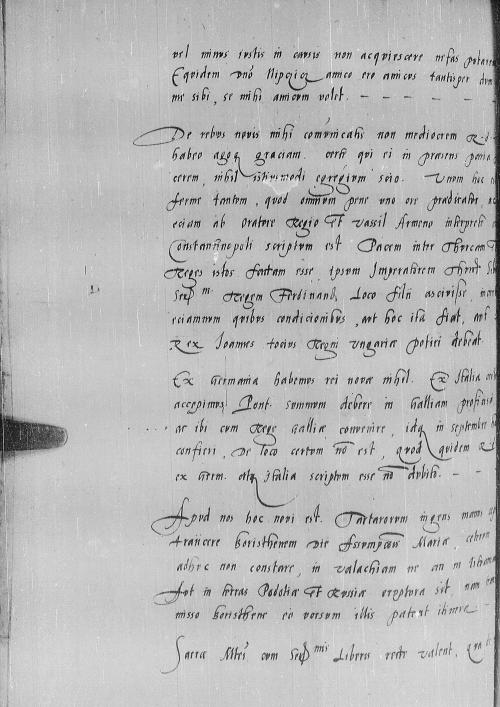 vel minus iustis in causis non acquiescere nefas putarem
Equidem uno amico ero amicus tantisper dum
me sibi, se mihi amicum volet. – – – – –
De rebus novis mihi com̄unicatis non mediocrem R. d.
habeo agoq gratiam. certe qui ei in praesens
cerem, nihil istiusmodi egregium scio. Unum hoc
ferme tantum, quod omnium pene uno ore praedicatur
eciam ab Oratore Regio et Vassil Armeno interprete
Constantinopoli scriptum est. Pacem inter Thurcam
Reges istos factam esse, ipsum Imperatorem Thurc
Ser m. Regem Ferdinand, Loco filii ascivisse,
eciamnum quibus condicionibus, aut hoc ita fiat,
Rex Joannes tocius Regni Ungariae potiri debeat.
Ex Germania habemus rei novae nihil. Ex Italia
accepimus Pont. summum debere in Galliam
ac ibi cum Rege Galliae convenire, idq in septembre
confieri, De loco certum nō est, quod quidem R. d.
ex Germ. atq Italia scriptum esse nō dubito. – –
Apud nos hoc novi est. Tartarorum ingens manus
traiicere Boristhenem die Assumpcōis Mariae,
adhuc non constare, in Valachiam ne an in
Aut in terras Podoliae et Russiae eruptura sit, nam
nisso Boristhene eo versum illis patent itinera –
Sacrae Mtes cum Ser mis Liberis recte valent,